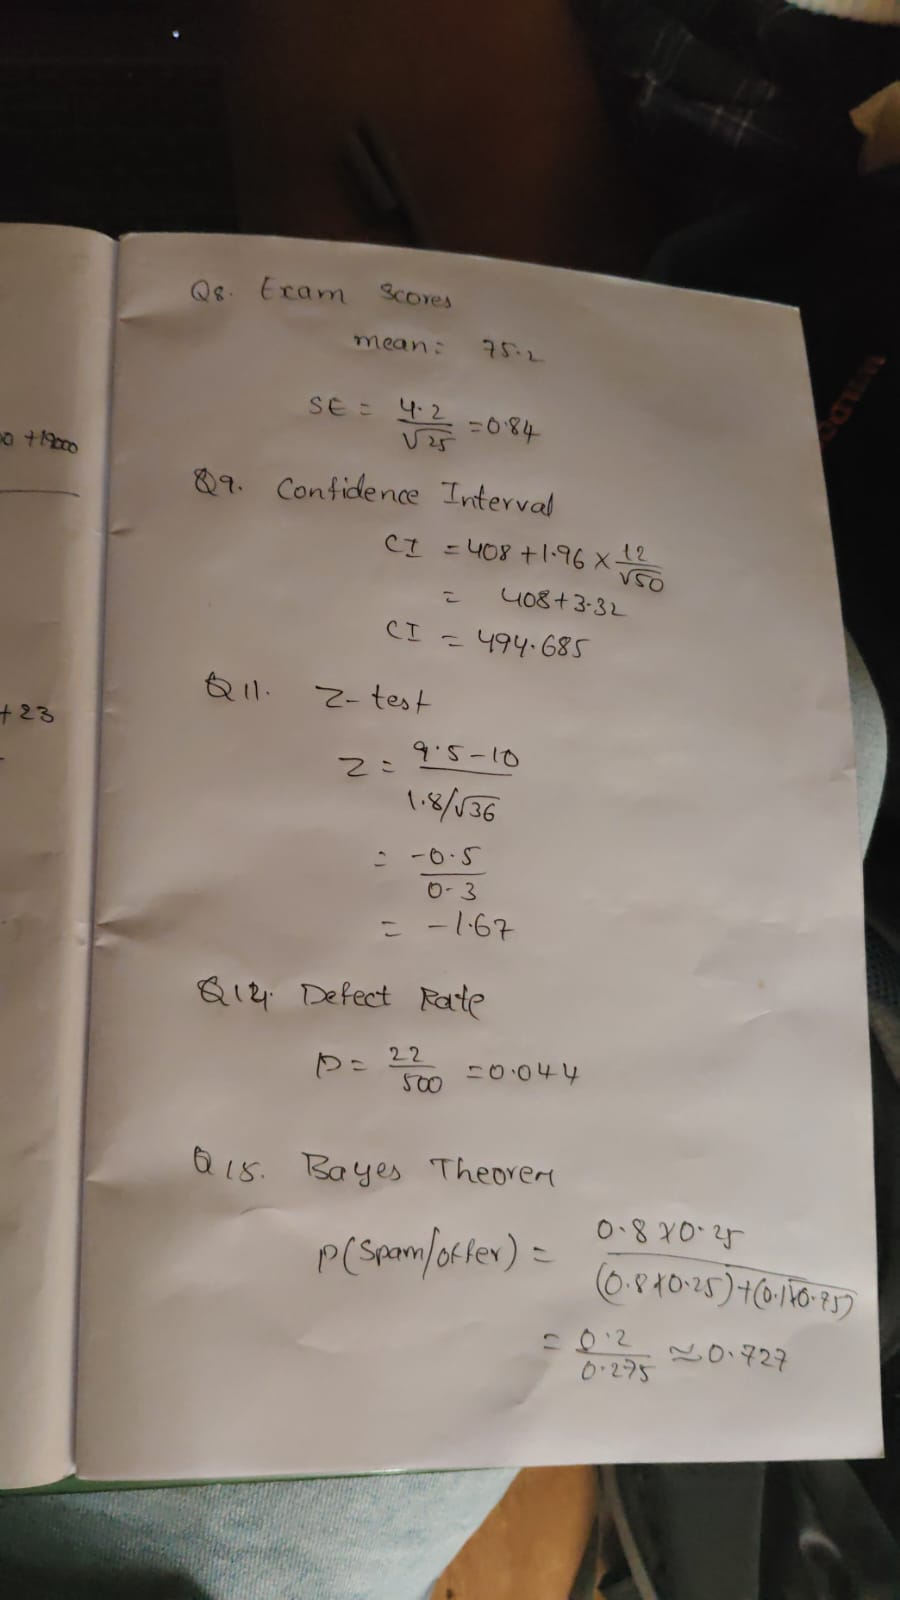 Q8. Exam Scores
mean: 75.2
SE = 4.2/√25 = 0.84
Q9. Confidence Interval
CI = 408 + 1.96 × 12/√50
= 408 + 3.32
CI = 494.685
Q11. Z-test
Z = 9.5-10
1.8/√36
= -0.5
0.3
= -1.67
Defect Rate
p = 22/500 = 0.044
Q15. Bayes Theorem
P(Spam/offer) = 0.8 × 0.25
(0.8×0.25)+(0.1×0.75)
= 0.2/0.275 ≈ 0.727
+19000
+23